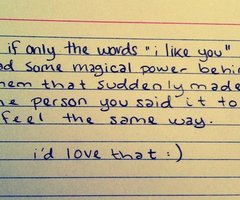 if only the words "i like you"
ad some magical power behi
hem that suddenly made
he person you said it to
feel the same way.
i'd love that :)